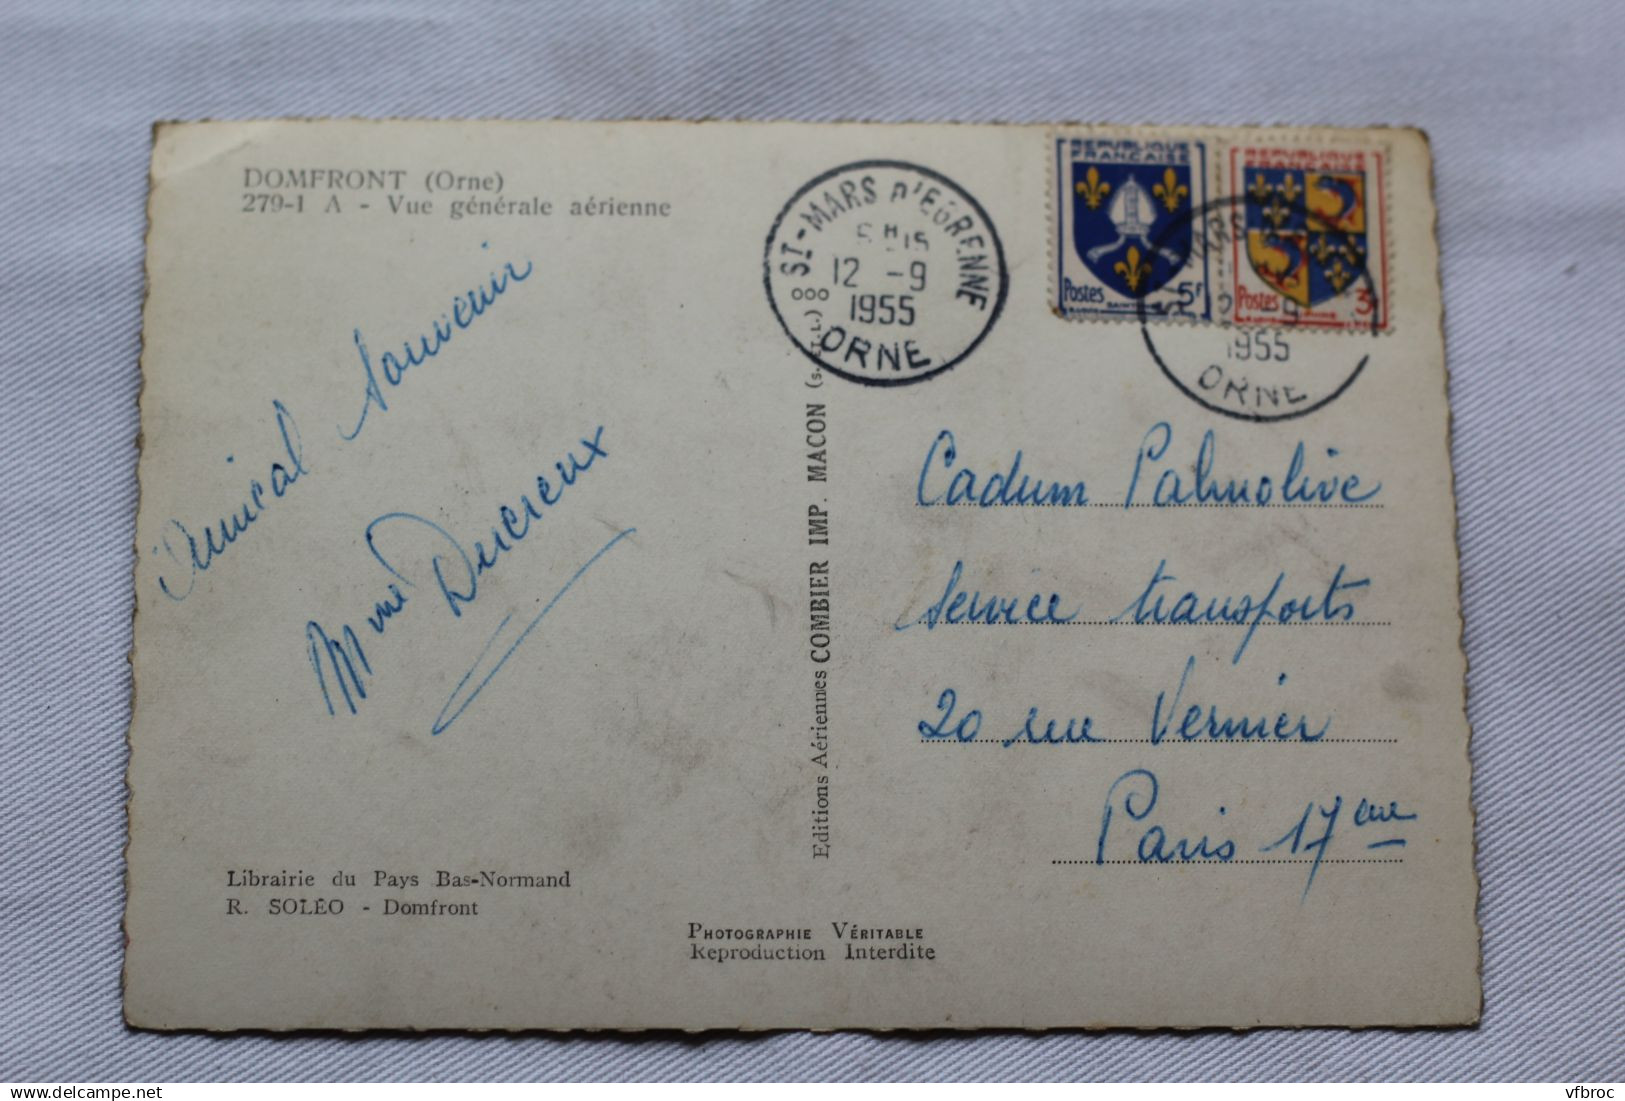 DOMFRONT (Orne)
279-1 A - Vue générale aérienne
Amical Souvenir
Mme Descreux
Librairie du Pays Bas-Normand
R. SOLÉO - Domfront
Editions Aériennes COMBIER IMP. MACON (S.A.L.)
PHOTOGRAPHIE VÉRITABLE
Reproduction Interdite
ST-MARS D'EGRENNE
12 -9
1955
ORNE
REPUBLIQUE
FRANÇAISE
Postes
5F
REPUBLIQUE
Postes
3
MARS
1955
ORNE
Cadum Palmolive
Service transports
20 rue Vernier
Paris 17eme
vfbroc